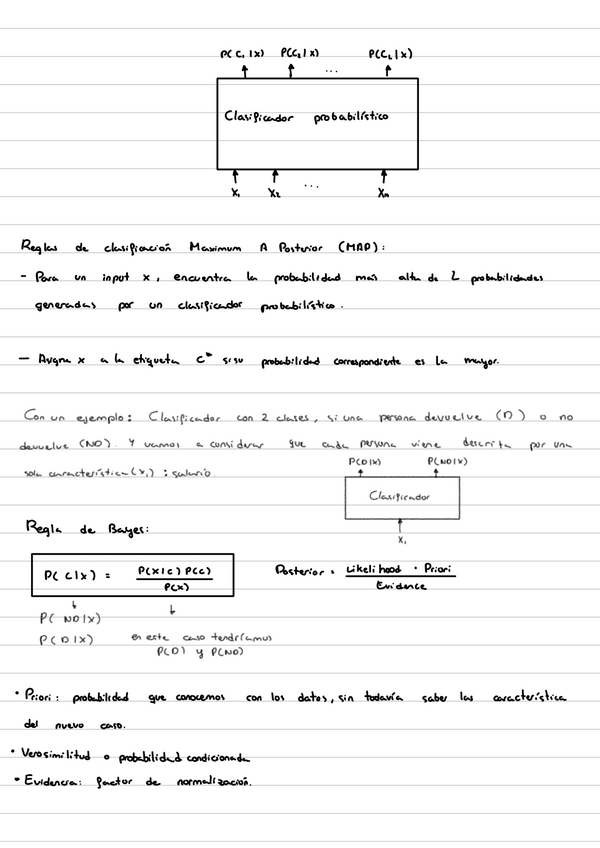 P(C₁|x) P(C₂|x) P(C_L|x)
...
Clasificador probabilístico
x₁ x₂ ... xₙ
Reglas de clasificación Maximum A Posterior (MAP):
- Para un input x, encuentra la probabilidad más alta de L probabilidades
generadas por un clasificador probabilístico.
- Asigna x a la etiqueta c* si su probabilidad correspondiente es la mayor.
Con un ejemplo: Clasificador con 2 clases, si una persona devuelve (D) o no
devuelve (ND). Y vamos a considerar que cada persona viene descrita por una
sola característica (x₁): salario.
P(D|x) P(ND|x)
Clasificador
x₁
Regla de Bayes:
P(C|x) = P(x|c) P(c) / P(x)
Posterior = Likelihood · Priori / Evidence
P(ND|x)
P(D|x) en este caso tendríamos
P(D) y P(ND)
• Priori: probabilidad que conocemos con los datos, sin todavía saber las característica
del nuevo caso.
• Verosimilitud o probabilidad condicionada
• Evidencia: factor de normalización.